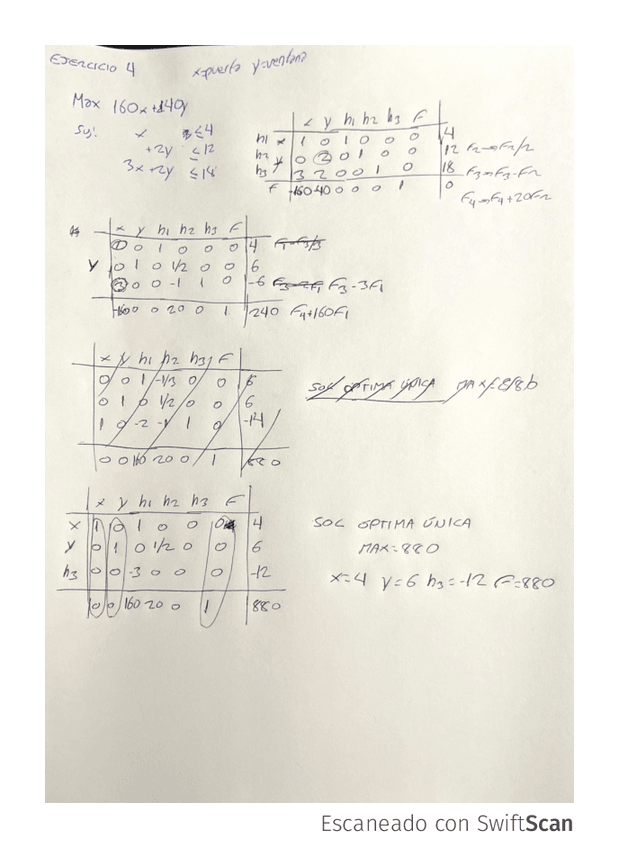 Ejercicio 4 x=puerta y=ventana
Max 160x+140y
Suj: x ≤4
+2y ≤12
3x +2y ≤18
x y h1 h2 h3 F
h1 x 1 0 1 0 0 0 4
h2 y 0 2 0 1 0 0 12 F2→F2/2
h3 3 2 0 0 1 0 18 F3→F3-F2
F -160 -40 0 0 0 1 0 F4→F4+20F2
x y h1 h2 h3 F
1 0 1 0 0 0 4
y 0 1 0 1/2 0 0 6
3 0 0 -1 1 0 -6 F3-3F1
-160 0 0 20 0 1 240 F4+160F1
x y h1 h2 h3 F
0 0 1 -1/3 0 0 6
0 1 0 1/2 0 0 6
1 0 -2 -1 1 0 -14
0 0 160 20 0 1 880
SOL OPTIMA ÚNICA
x y h1 h2 h3 F
x 1 0 1 0 0 0 4
y 0 1 0 1/2 0 0 6
h3 0 0 -3 0 0 0 -12
0 0 160 20 0 1 880
SOL OPTIMA ÚNICA
MAX=880
x=4 y=6 h3=-12 F=880
Escaneado con SwiftScan